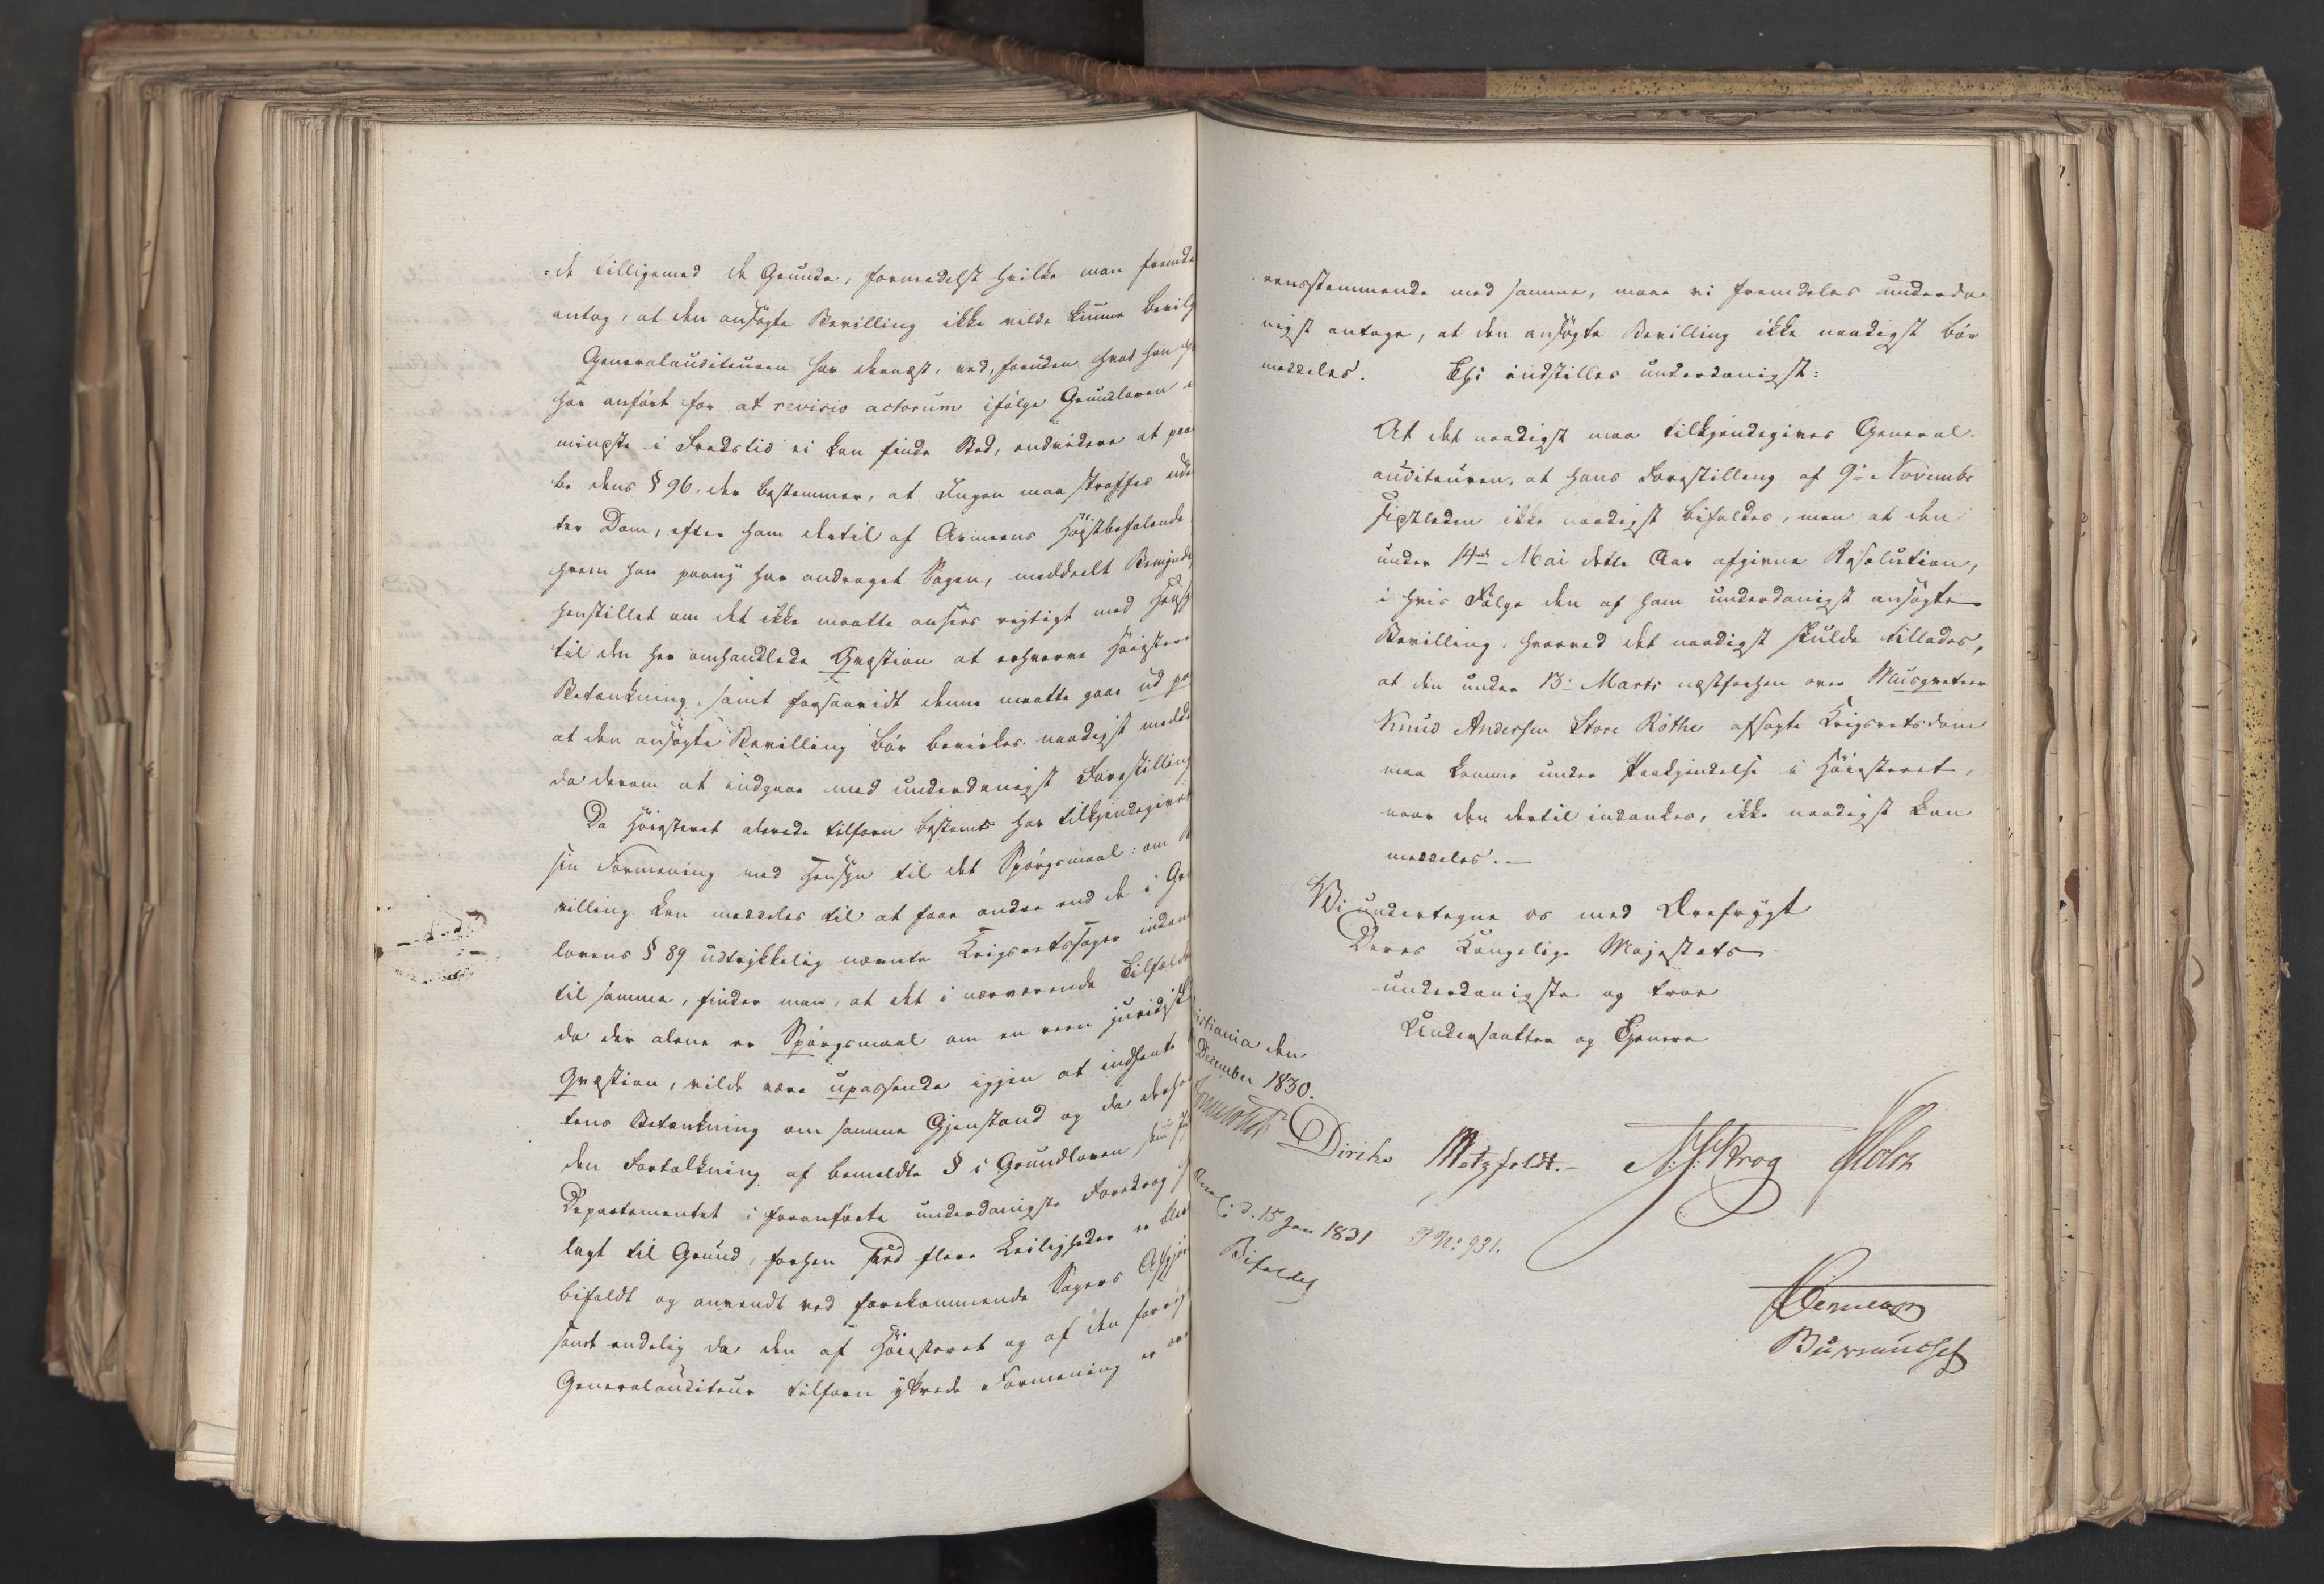 de tilligemed de Grunde, formedelst hvilke man fremde
antog, at den ansøgte Bevilling ikke vilde kunne bevilg
Generalauditeuren har dernæst, ved, foruden hvad han
har anført for at revisio actorum ifølge Grundloven
mindste i Fredstid ei kan finde Sted, endvidere at paa
be dens § 96. der bestemmer, at Ingen maa straffes uden
ter Dom, efter ham dertil af Armeens Høistbefalende
hvem han paany har andraget Sagen, meddeelt Bemyndi
henstillet om det ikke maatte ansees rigtigt med Hensy
til den her omhandlede Qvæstion at erhverve Høiestere
Betænkning, samt forsaavidt denne maatte gaae ud pa
at den ansøgte Bevilling bør bevirkes naadigst medde
da derom at indgaae med underdanigst Forestilling
Da Høiesteret alerede tilforn bestemt har tilkjendegivet
sin Formening med Hensyn til det Spørgsmaal: om B
villing kan meddeles til at faae andre end de i Gr
lovens § 89 udtrykkelig nævnte Krigsretssager indan
til samme, finder man, at det i nærværende Tilfælde
da der alene er Spørgsmaal om en reen juridisk
Qvæstion, vilde være upassende igjen at indhente
tens Betænkning om samme Gjenstand og da derho
den Fortolkning af bemeldte § i Grundloven som
Departementet i foranførte underdanigste Foredrag
lagt til Grund, forhen ved flere Leiligheder er
bifaldt og anvendt ved forekommende Sagers Afgjør
samt endelig da den af Høiesteret og af den forrige
Generalauditeur tilforn yttrede Formening er ov
eensstemmende med samme, maae vi fremdeles underda
nigst antage, at den ansøgte Bevilling ikke naadigst bør
meddeles. Thi indstilles underdanigst:
At det naadigst maa tilkjendegives General-
auditeuren, at hans Forestilling af 9de Novembr
sidstleden ikke naadigst bifaldes, men at den
under 14de Mai dette Aar afgivne Resolution,
i hvis Følge den af ham underdanigst ansøgte
Bevilling, hvorved det naadigst skulde tillades,
at den under 13de Marts næstforhen over Musqveteer
Knud Andersen Store Röthe afsagte Krigsretsdom
maa komme under Paakjendelse i Høiesteret,
naar den dertil indankes, ikke naadigst kan
meddeles. —
Vi undertegne os med Ærefrygt
Deres Kongelige Majestæts
underdanigste og troe
Undersaatter og Tjenere
istiania den
December 1830.
Diriks Motzfeldt. N. J. Krog Holst
d. 15 Jan 1831 P No: 931.
Bifaldes